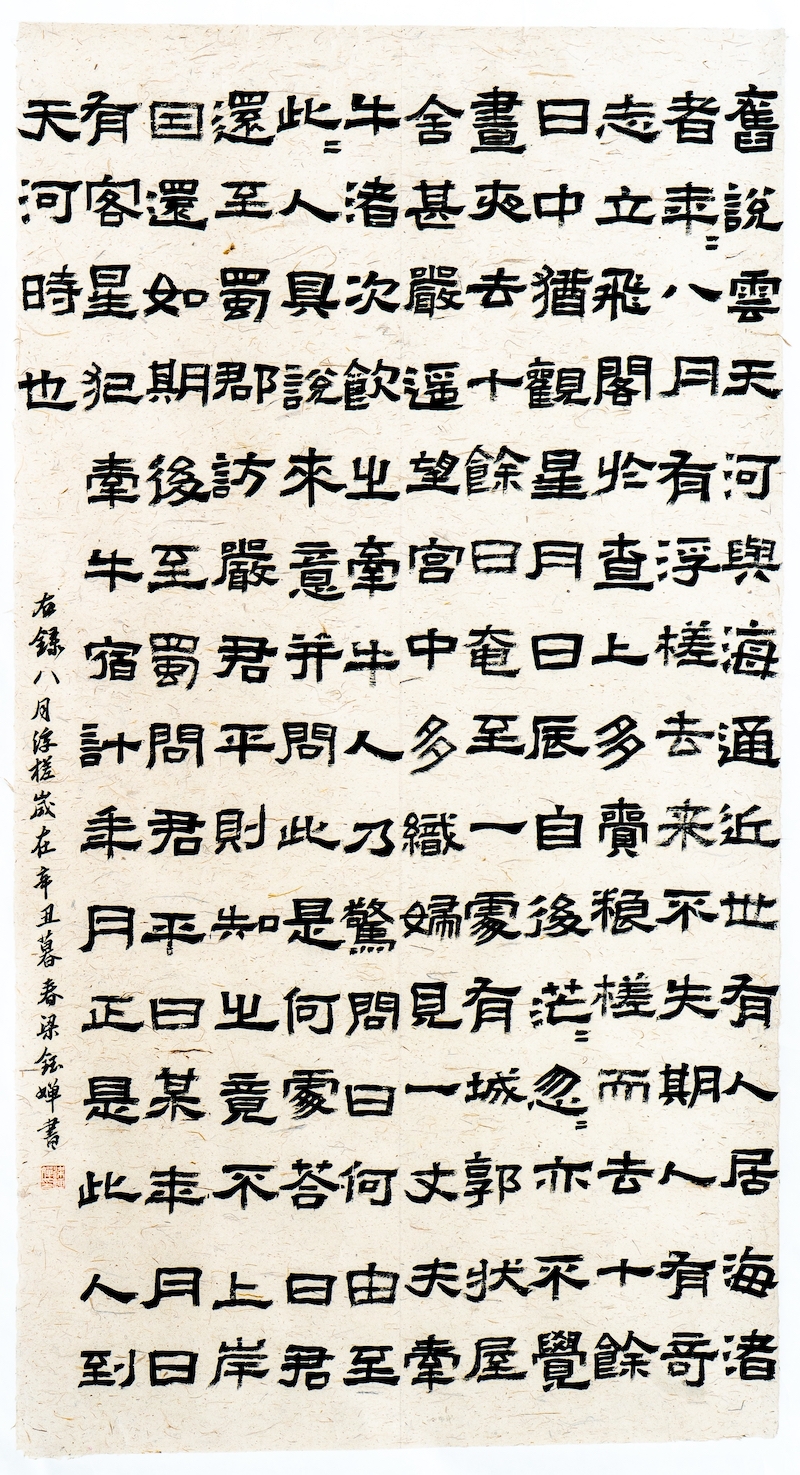 舊說雲天河與海通近世有人居海渚
者年〻八月有浮槎去来不失期人有奇
志立飛閣於查上多賷粮槎而去十餘
日中猶觀星月日辰自後茫〻忽〻亦不覺
晝夜去十餘日奄至一處有城郭狀屋
舍甚嚴遥望宮中多織婦見一丈夫牽
牛渚次飲之牽牛人乃驚問曰何由至
此〻人具說來意并問此是何處荅曰君
還至蜀郡訪嚴君平則知之竟不上岸
因還如期後至蜀問君平曰某年月日
有客星犯牽牛宿計年月正是此人到
天河時也
右錄八月浮槎歲在辛丑暮春梁鈺婵書